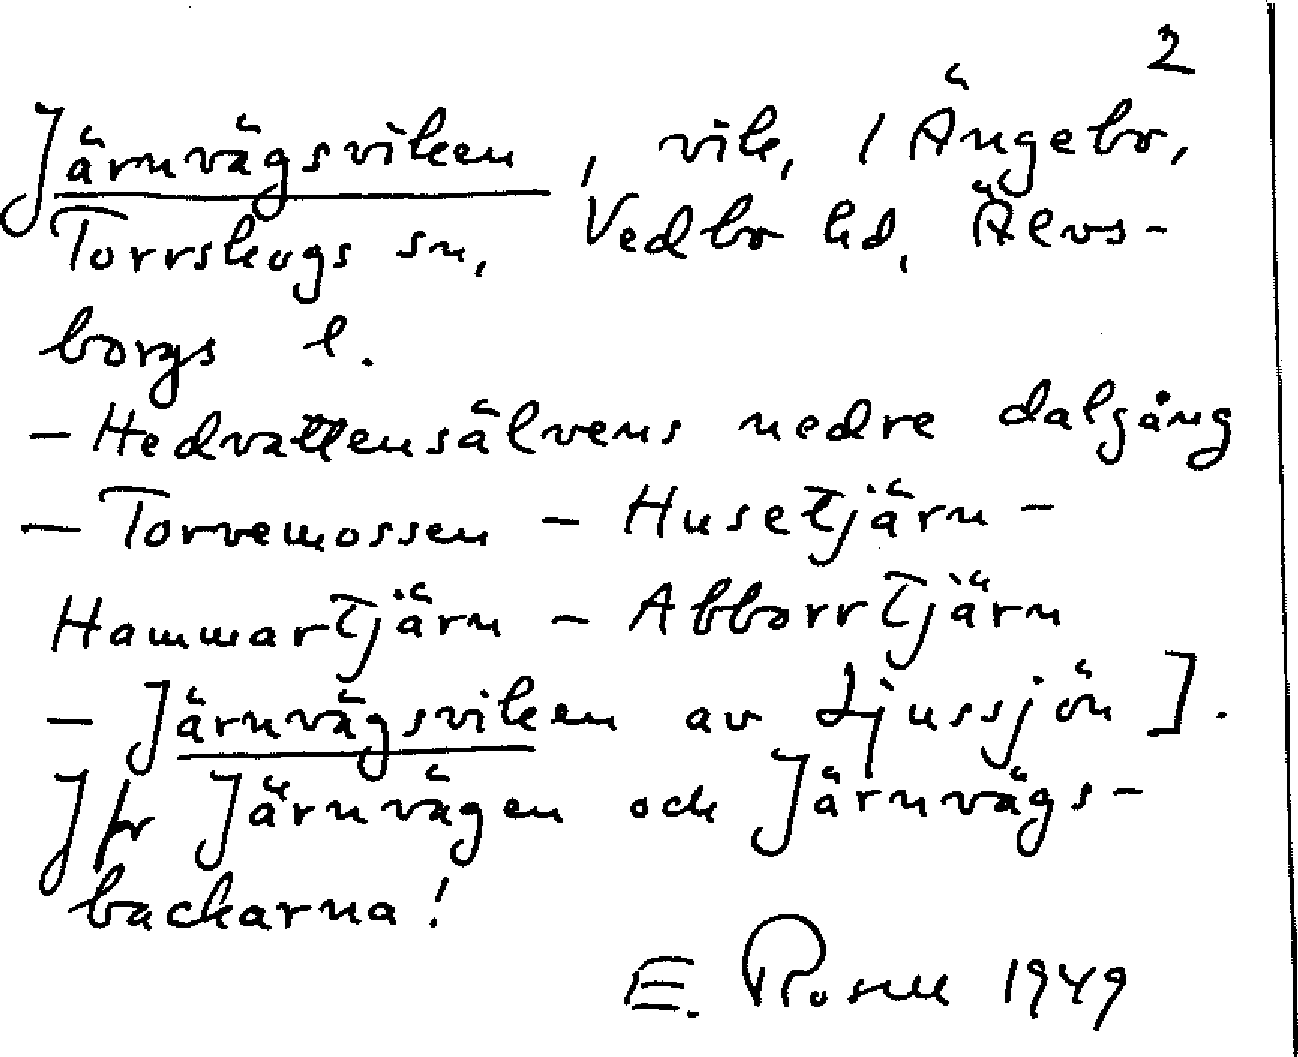 2
Järnvägsviken, vik, / Ängebo,
Torrskogs sn, Vedbo hd, Älvs-
borgs l.
- Hedvattensälvens nedre dalgång
- Torvemossen - Husetjärn -
Hammartjärn - Abborrtjärn
- Järnvägsviken av Ljussjön].
Jfr Järnvägen och Järnvägs-
backarna!
E. Rosell 1949